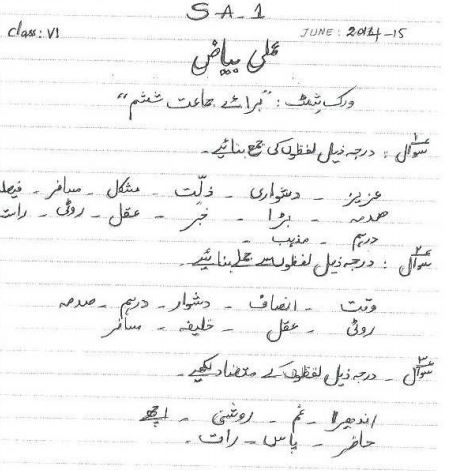 SA-1
class: VI
JUNE: 2014-15
عملی بیاض
ورک شیٹ: "برائے جماعت ششم"
سوال ۱: درجہ ذیل لفظوں کی جمع بنائیے۔
عزیز - دشواری - ذلّت - مشکل - مسافر -
صدمہ - - خبر - عقل - روٹی - رات
درہم - مذہب -
سوال ۲: درجہ ذیل لفظوں سے جملے بنائیے۔
وقت - انصاف - دشوار - درہم - صدمہ
روٹی - عقل - خلیفہ - مسافر
سوال ۳ - درجہ ذیل لفظوں کے متضاد لکھیے۔
اندھیرا - غم - روشنی - اچھے
حاضر - پاس - رات -